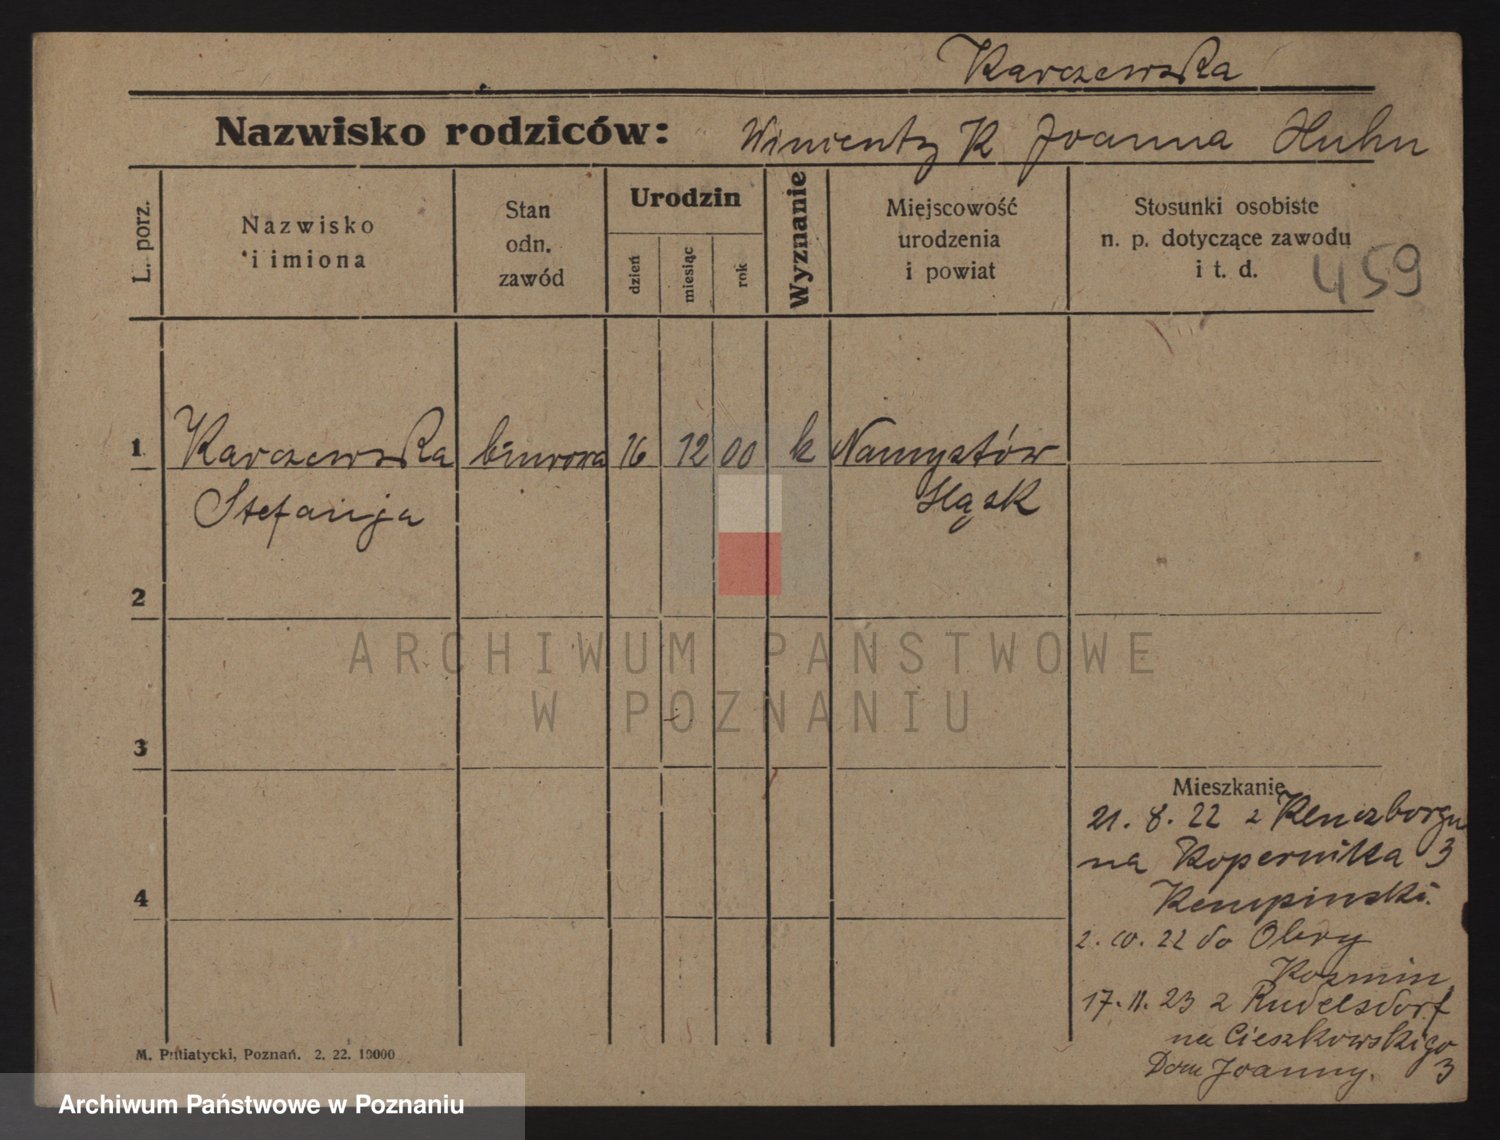 Karczewska
Nazwisko rodziców: Wincenty K Joanna Huhn
L. porz.
Nazwisko i imiona
Stan odn. zawód
Urodzin
dzień
miesiąc
rok
Wyznanie
Miejscowość urodzenia i powiat
Stosunki osobiste n. p. dotyczące zawodu i t. d.
459
1 Karczewska biurowa 16 12 00 k Namysłów
Stefanja Śląsk
2
3
Mieszkanie
21. 8. 22 z
na Kopernika 3
4
Kempinski.
2. 10. 22 do Obry
Kozmin
17. 11. 23 z Rudelsdorf
na Cieszkowskiego 3
Dom Joanny.
M. Putiatycki, Poznań. 2. 22. 10000
ARCHIWUM PAŃSTWOWE
W POZNANIU
Archiwum Państwowe w Poznaniu